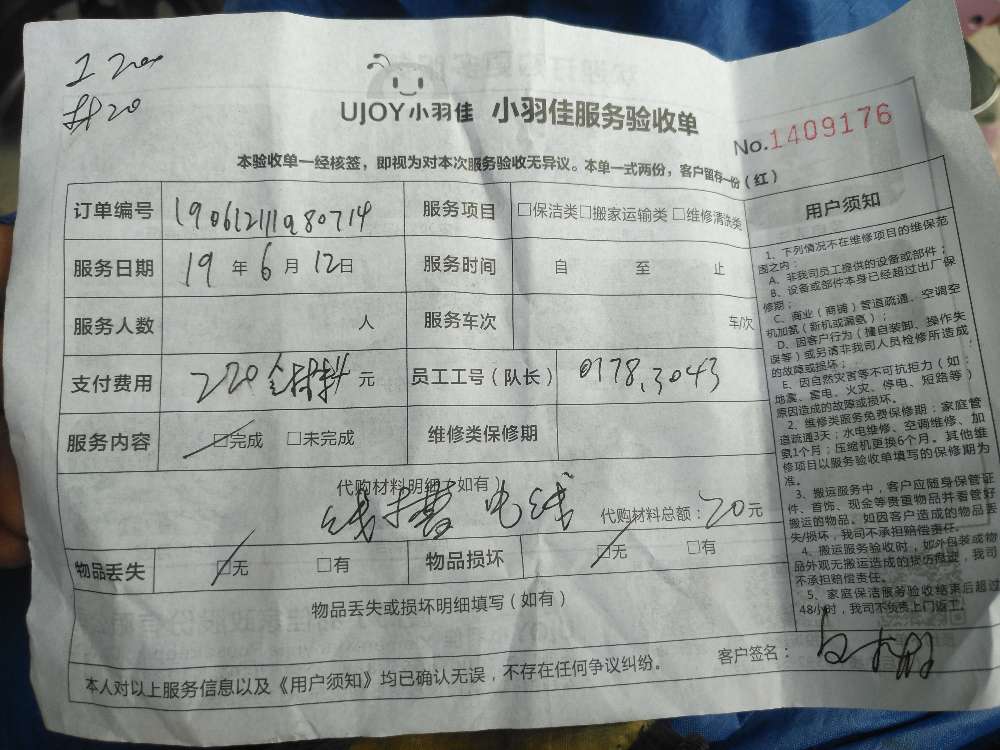 工200
材20
UJOY小羽佳 小羽佳服务验收单
No.1409176
本验收单一经核签，即视为对本次服务验收无异议。本单一式两份，客户留存一份（红）
订单编号 服务项目 □保洁类□搬家运输类□维修清洗类
服务日期 19年6月12日 服务时间 自 至 止
服务人数 人 服务车次 车/次
支付费用 220含材料元 员工工号（队长） 0178.3043
服务内容 □完成 □未完成 维修类保修期
代购材料明细（如有）
线槽 电线 代购材料总额：20元
物品丢失 □无 □有 物品损坏 □无 □有
物品丢失或损坏明细填写（如有）
客户签名：
本人对以上服务信息以及《用户须知》均已确认无误，不存在任何争议纠纷。
用户须知
1、下列情况不在维修项目的维保范
围之内：
A、非我司员工提供的设备或部件；
B、设备或部件本身已经超过出厂保
修期；
C、商业（商铺）管道疏通、空调空
机加氨（新机或漏氨）；
D、因客户行为（擅自装卸、操作失
误等）或另请非我司人员检修所造成
的故障或损坏；
E、因自然灾害等不可抗拒力（如：
地震、雷电、火灾、停电、短路等）
原因造成的故障或损坏。
2、维修类服务免费保修期：家庭管
道疏通3天；水电维修、空调维修、加
氨1个月；压缩机更换6个月。其他维
修项目以服务验收单填写的保修期为
准。
3、搬运服务中，客户应随身保管证
件、首饰、现金等贵重物品并看管好
搬运的物品。如因客户造成的物品丢
失/损坏，我司不承担赔偿责任。
4、搬运服务验收时，如外包装或物
品外观无搬运造成的损伤痕迹，我司
不承担赔偿责任。
5、家庭保洁服务验收结束后超过
48小时，我司不负责上门返工。